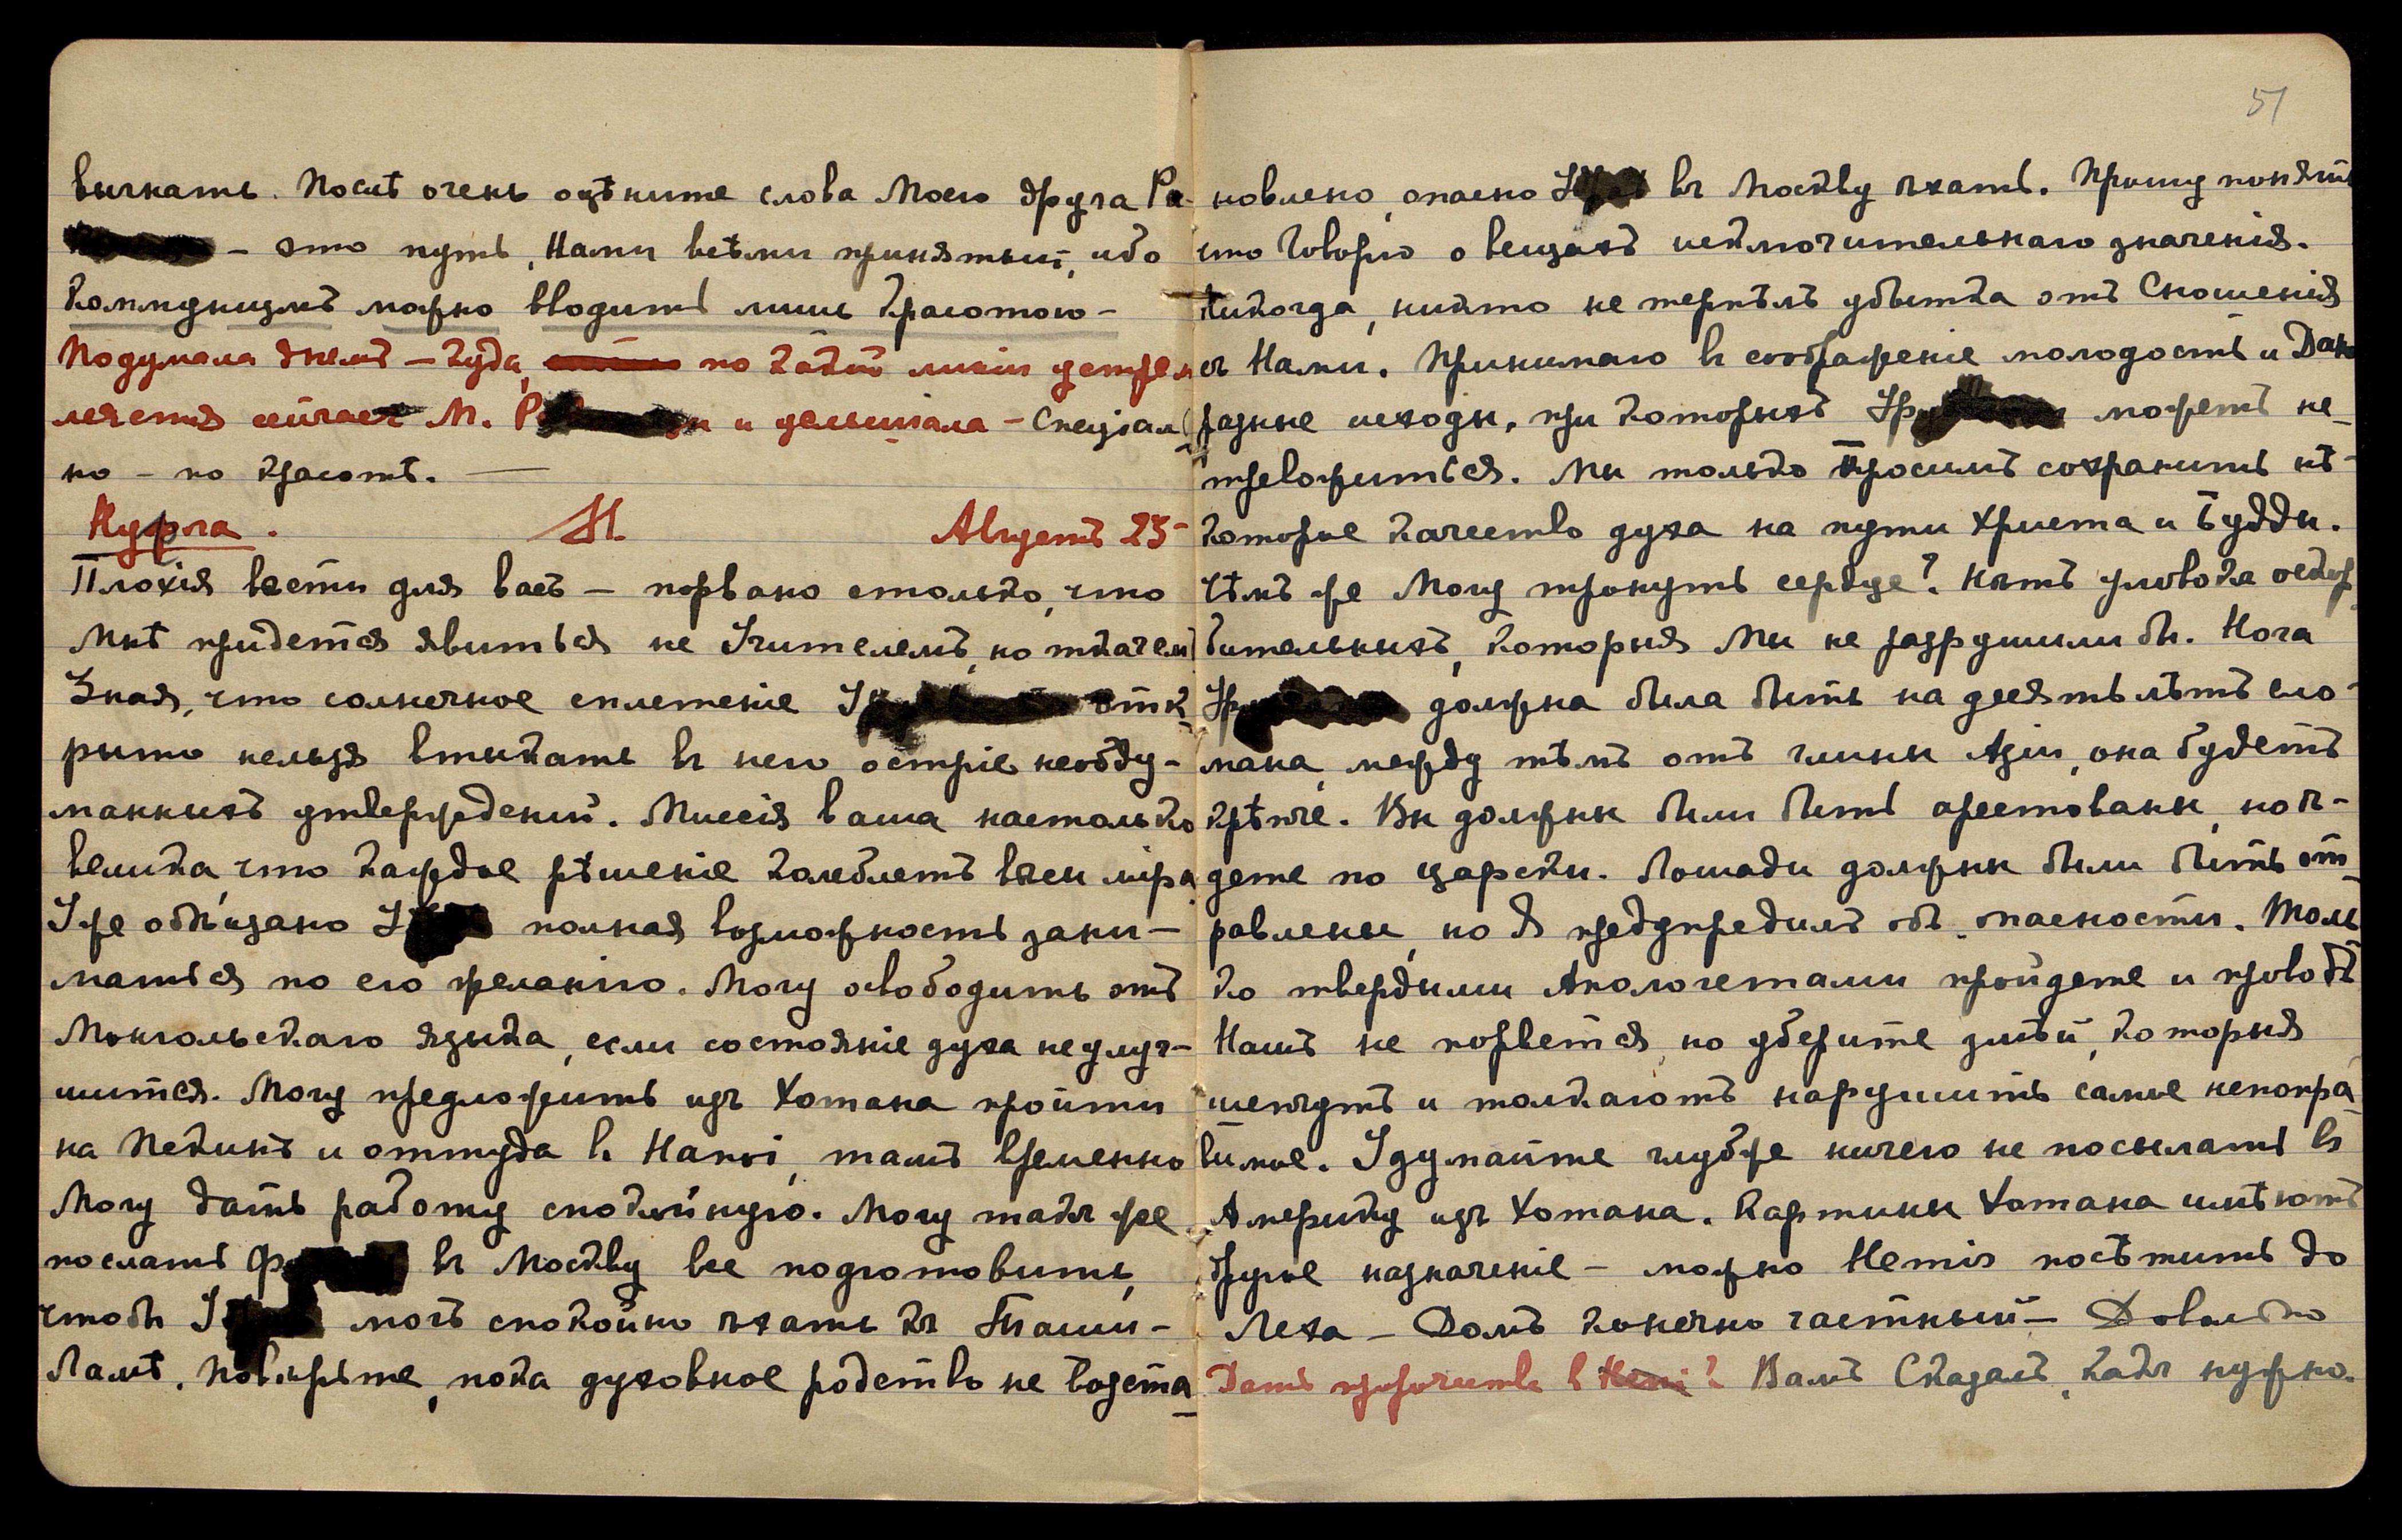 выкать. Послѣ очень оцѣните слова Моего друга Ра-
— это путь, Нами всѣми принятый, ибо
Коммунизмъ можно вводить лишь красотою —
Подумала днемъ — куда, по какой линіи устрем-
ляется сейчасъ М. и услышала — Спеціаль-
но — по красотѣ. —
Кужга. М. Августъ 25-
Плохія вести для васъ — порвано столько, что
Мнѣ придется явиться не Учителемъ, но ткачемъ
Зная, что солнечное сплетеніе откры-
рыто нельзя втыкать въ него остріе необду-
манныхъ утвержденій. Миссія ваша настолько
велика, что каждое рѣшеніе колеблетъ вѣсы міра,
Уже обѣщано полная возможность зани-
маться по его желанію. Могу освободить отъ
Монгольскаго языка, если состояніе духа не улуч-
шится. Могу предложить изъ Хотана пройти
на Пекинъ и оттуда въ Напоі, тамъ временно
Могу дать работу спокойную. Могу такъ же
послать въ Москву все подготовить,
чтобы могъ спокойно ѣхать къ Таши-
Ламѣ. Повѣрьте, пока духовное родство не возста-
51
новлено, опасно въ Москву ѣхать. Прошу понять
что Говорю о вещахъ исключительнаго значенія.
Никогда, никто не терпѣлъ убытка отъ Сношенія
съ Нами. Принимаю въ соображеніе молодость и Даю
разные исходы, при которыхъ можетъ не
тревожиться. Мы только Просимъ сохранить нѣ-
которое качество духа на пути Христа и Будды.
Чѣмъ же Могу тронуть сердце? Нѣтъ условія оскор-
бительныхъ, которыя Мы не разрушили бы. Нога
должна была быть на десять лѣтъ сло-
мана, между тѣмъ отъ глины Азіи, она будетъ
крѣпче. Вы должны были быть арестованы, но ѣ-
дете по царски. Лошади должны были быть от-
равлены, но Я предупредилъ объ опасности. Толь-
ко твердыми Апологетами пройдете и проводъ
Нашъ не порвется, но уберите змѣй, которыя
шепчутъ и толкаютъ нарушить самое непопра-
вимое. Удумайте глубже ничего не посылать въ
Америку изъ Хотана. Картины Хотана имѣютъ
другое назначеніе — можно Hemis посѣтить до
Леха — Домъ конечно частный — Довольно
Дать прочитать въ Hemi? Вамъ Сказалъ, какъ нужно.